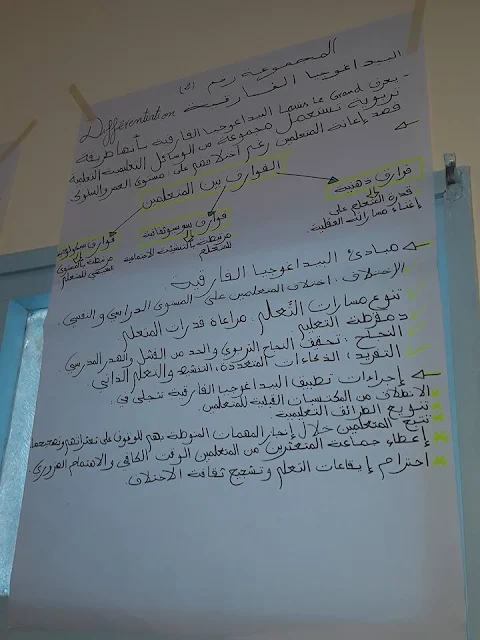 المجموعة رقم (2)
البيداغوجيا الفارقية Différentiation
- يعرف Le Grand البيداغوجيا الفارقية بأنها طريقة
تربوية تستعمل مجموعة من الوسائل التعليمية التعلمية
قصد إعانة المتعلمين رغم اختلافهم على مستوى العمر والسلوك
الفوارق بين المتعلمين
فوارق ذهنية
قدرة المتعلم على
إغناء مسارات العقلية
فوارق سوسيوثقافية
مرتبطة بالتنشئة الاجتماعية
للمتعلم
فوارق سيكولوجية
مرتبطة بالمستوى
النفسي للمتعلم
مبادئ البيداغوجيا الفارقية
الاختلاف: اختلاف المتعلمين على المستوى الدراسي والنفسي.
تنوع مسارات التعلم: مراعاة قدرات المتعلم
دمقرطة التعليم
النجاح: تحقق النجاح التربوي والحد من الفشل والهدر المدرسي
التفريد: الذكاءات المتعددة، التنشيط والتعلم الذاتي.
إجراءات تطبيف البيداغوجيا الفارقية تتجلى في:
الانطلاق من المكتسبات القبلية للمتعلمين
تنويع الطرائق التعليمية
تتبع المتعلمين خلال إنجاز المهمات المنوطة بهم للوقوف على تعثراتهم وتصحيحها
إعطاء جماعة المتعثرين من المتعلمين الوقت الكافي والاهتمام الضروري.
احترام إيقاعات التعلم وتشجيع ثقافة الاختلاف.